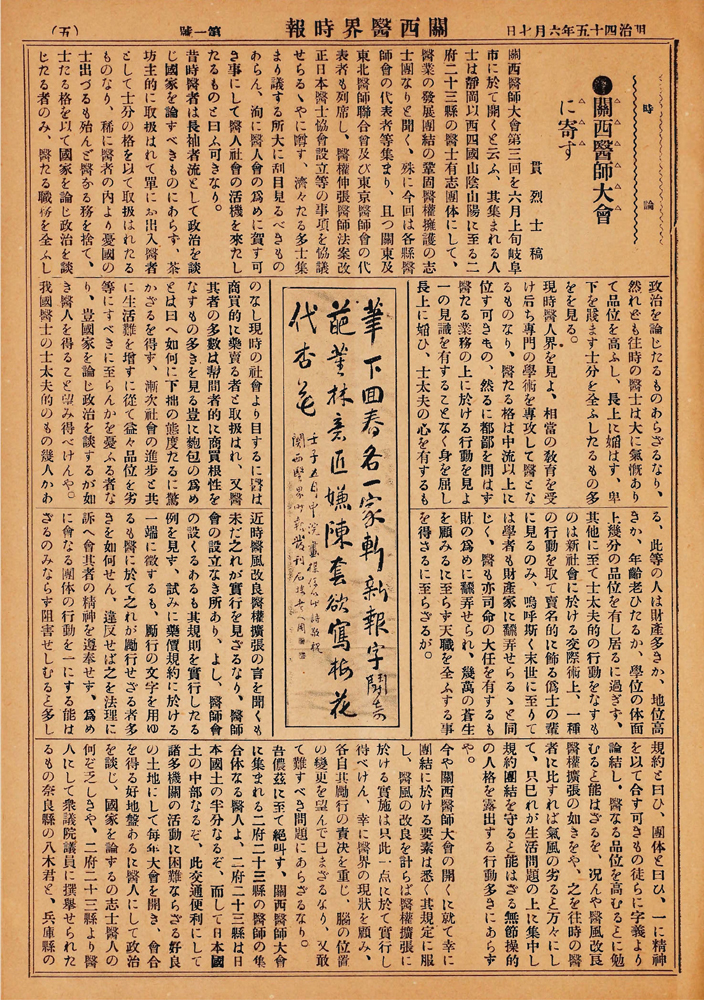 明治四十五年六月七日
關西醫界時報
第一號
（五）
時論
關西醫師大會
に寄す
貫烈士稿
關西醫師大會第三回を六月上旬岐阜
市に於て開くと云ふ、其集まれる人
士は靜岡以西四國山陰山陽に至る二
府二十三縣の醫士有志團体にして、
醫業の發展團結の鞏固醫權擁護の志
士團なりと聞く、殊に今回は各縣醫
師會の代表者等集まり、且つ關東及
東北醫師聯合會及び東京醫師會の代
表者も列席し、醫權伸張醫師法案改
正日本醫士協會設立等の事項を協議
せらるゝやに噂す、濟々たる多士集
まり議する所大に刮目見るべきもの
あらん、洵に醫人會の爲めに賀す可
き事にして醫人社會の活機を來たし
たるものと曰ふ可きなり。
昔時醫者は長袖者流として政治を談
じ國家を論ずべきものにあらず、茶
坊主的に取扱はれて單にお出入醫者
として士分の格を以て取扱はれたる
ものなり、稀に醫者の内より憂國の
士出づるも殆んど醫たる務を捨て、
士たる格を以て國家を論じ政治を談
じたる者のみ、醫たる職務を全ふし
政治を論じたるものあらざるなり、
然れども往時の醫士は大に氣慨あり
て品位を高ふし、長上に媚はす、卑
下を賤ます士分を全ふしたるもの多
きを見る。
現時醫人界を見よ、相當の敎育を受
け后ち專門の學術を專攻して醫とな
るものなり、醫たる格は中流以上に
位す可きもの、然るに都鄙を問はず
醫たる業務の上に於ける行動を見よ
一の見識を有することなく身を屈し
長上に媚ひ、士太夫の心を有するも
のなし現時の社會より目するに醫は
商買的に藥賣る者と取扱はれ、又醫
其者の多數は幇間者的に商買根性を
なすもの多きを見る豈に麭包の爲め
とは曰へ如何に下拙の態度たるに驚
かざるを得ず、漸次社會の進步と共
に生活難を增すに從て益々品位を劣
等にすべきに至らんかを憂ふる者な
り、豈國家を論じ政治を談するが如
き醫人を得ること望み得べけんや。
我國醫士の士太夫的のもの幾人かわ
筆下回春名一家斬新報字鬪
葩華林意匠嫌陳套欲寫梅花
代杏花
る、此等の人は財產多きか、地位高
きか、年齡老ひたるか、學位の体面
上幾分の品位を有し居るに過ぎす、
其他に至て士太夫的の行動をなすも
のは新社會に於ける交際術上、一種
の行動を取て賣名的に飾る僞士の輩
に見るのみ、嗚呼斯く末世に至りて
は學者も財產家に飜弄せらるゝと同
じく、醫も亦司命の大任を有するも
財の爲めに飜弄せられ、幾萬の蒼生
を顧みるに至らず天職を全ふする事
を得さるに至らざるが。
近時醫風改良醫權擴張の言を聞くも
未だ之れが實行を見ざるなり、醫師
會の設立なき所あり、よし、醫師會
の設くるあるも其規則を實行したる
例を見す、試みに藥價規約に於ける
一端に徵するも、勵行の文字を用ゆ
るも醫に於て之れが勵行せざる者多
きを如何せん、違反せば之を法理に
訴へ會其者の精神を遵奉せず、爲め
に會なる團体の行動を一にする能は
ざるのみならず阻害せしむると多し
規約と曰ひ、團体と曰ひ、一に精神
を以て合す可きもの徒らに字義より
論結し、醫なる品位を高むるとに勉
むると能はざるを、况んや醫風改良
醫權擴張の如きをや、之を往時の醫
者に比すれば氣風の劣ると万々にし
て、只已れが生活問題の上に集中し
規約團結を守ると能はざる無節操的
の人格を露出する行動多きにあらす
や。
今や關西醫師大會の開くに就て幸に
團結に於ける要素は悉く其規定に服
し、醫風の改良を計らば醫權擴張に
於ける實施は只此一点に於て實行し
得べけん、幸に醫界の現狀を顧み、
各自其勵行の責決を重じ、腦の位置
の變更を望んで已まざるなり、又敢
て難すべき問題にあらざるなり。
吾儂茲に至て絕叫す、關西醫師大會
に集まれる二府二十三縣の醫師の集
合体なる醫人よ、二府二十三縣は日
本國土の半分なるぞ、而して日本國
土の中部なるぞ、此交通便利にして
諸多機關の活動に困難ならざる好良
の土地にして每年大會を開き、會合
を得る好地盤あるに醫人にして政治
を談じ、國家を論ずるの志士醫人の
何ぞ乏しきや、二府二十三縣より醫
人にして衆議院議員に撰擧せられた
るもの奈良縣の八木君と、兵庫縣の